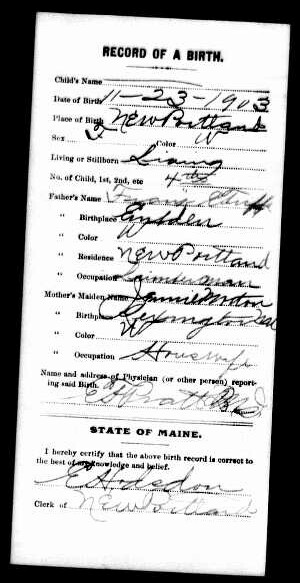 RECORD OF A BIRTH.
Child's Name
Date of Birth 11-23-1903
Place of Birth New Portland
Sex F Color W
Living or Stillborn Living
No. of Child, 1st, 2nd, etc 4th
Father's Name
" Birthplace Embden
" Color W
" Residence New Portland
" Occupation
Mother's Maiden Name
" Birthp Lexington
" Color W
" Occupation Housewife
Name and address of Physician (or other person) report-
ing said Birth. Pratt MD
STATE OF MAINE.
I hereby certify that the above birth record is correct to
the best of my knowledge and belief.
Clerk of New Portland